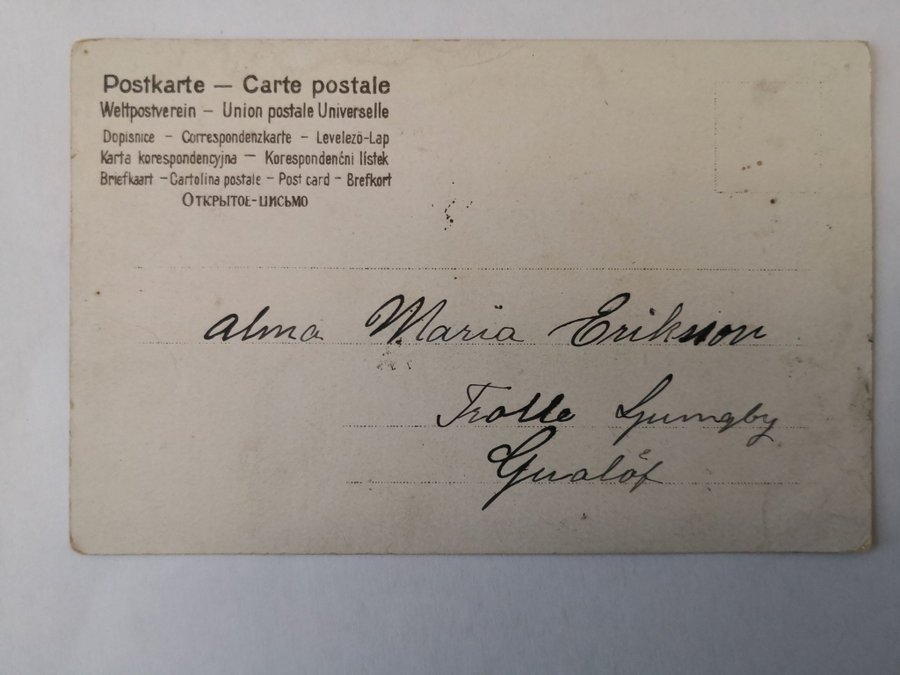 Postkarte — Carte postale
Weltpostverein — Union postale Universelle
Dopisnice — Correspondenzkarte — Levelező-Lap
Karta korespondencyjna — Korespondenční lístek
Briefkaart — Cartolina postale — Post card — Brefkort
Открытое-письмо
Alma Maria Eriksson
Trolle Ljungby
Gualöf